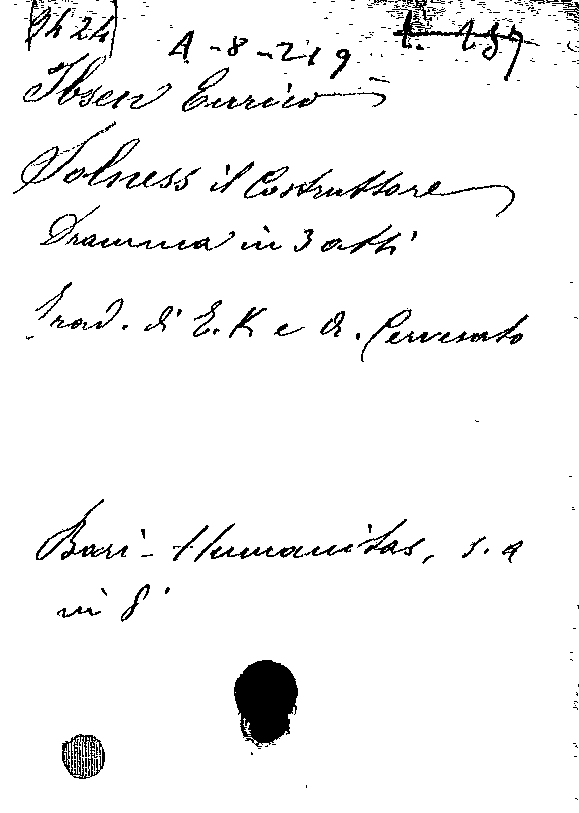 9424)
A-8-219
Ibsen Enrico
Solness il Costruttore
Dramma in 3 atti
Trad. di E. K e A. Cervesato
Bari - Humanitas, s. a
in 8°